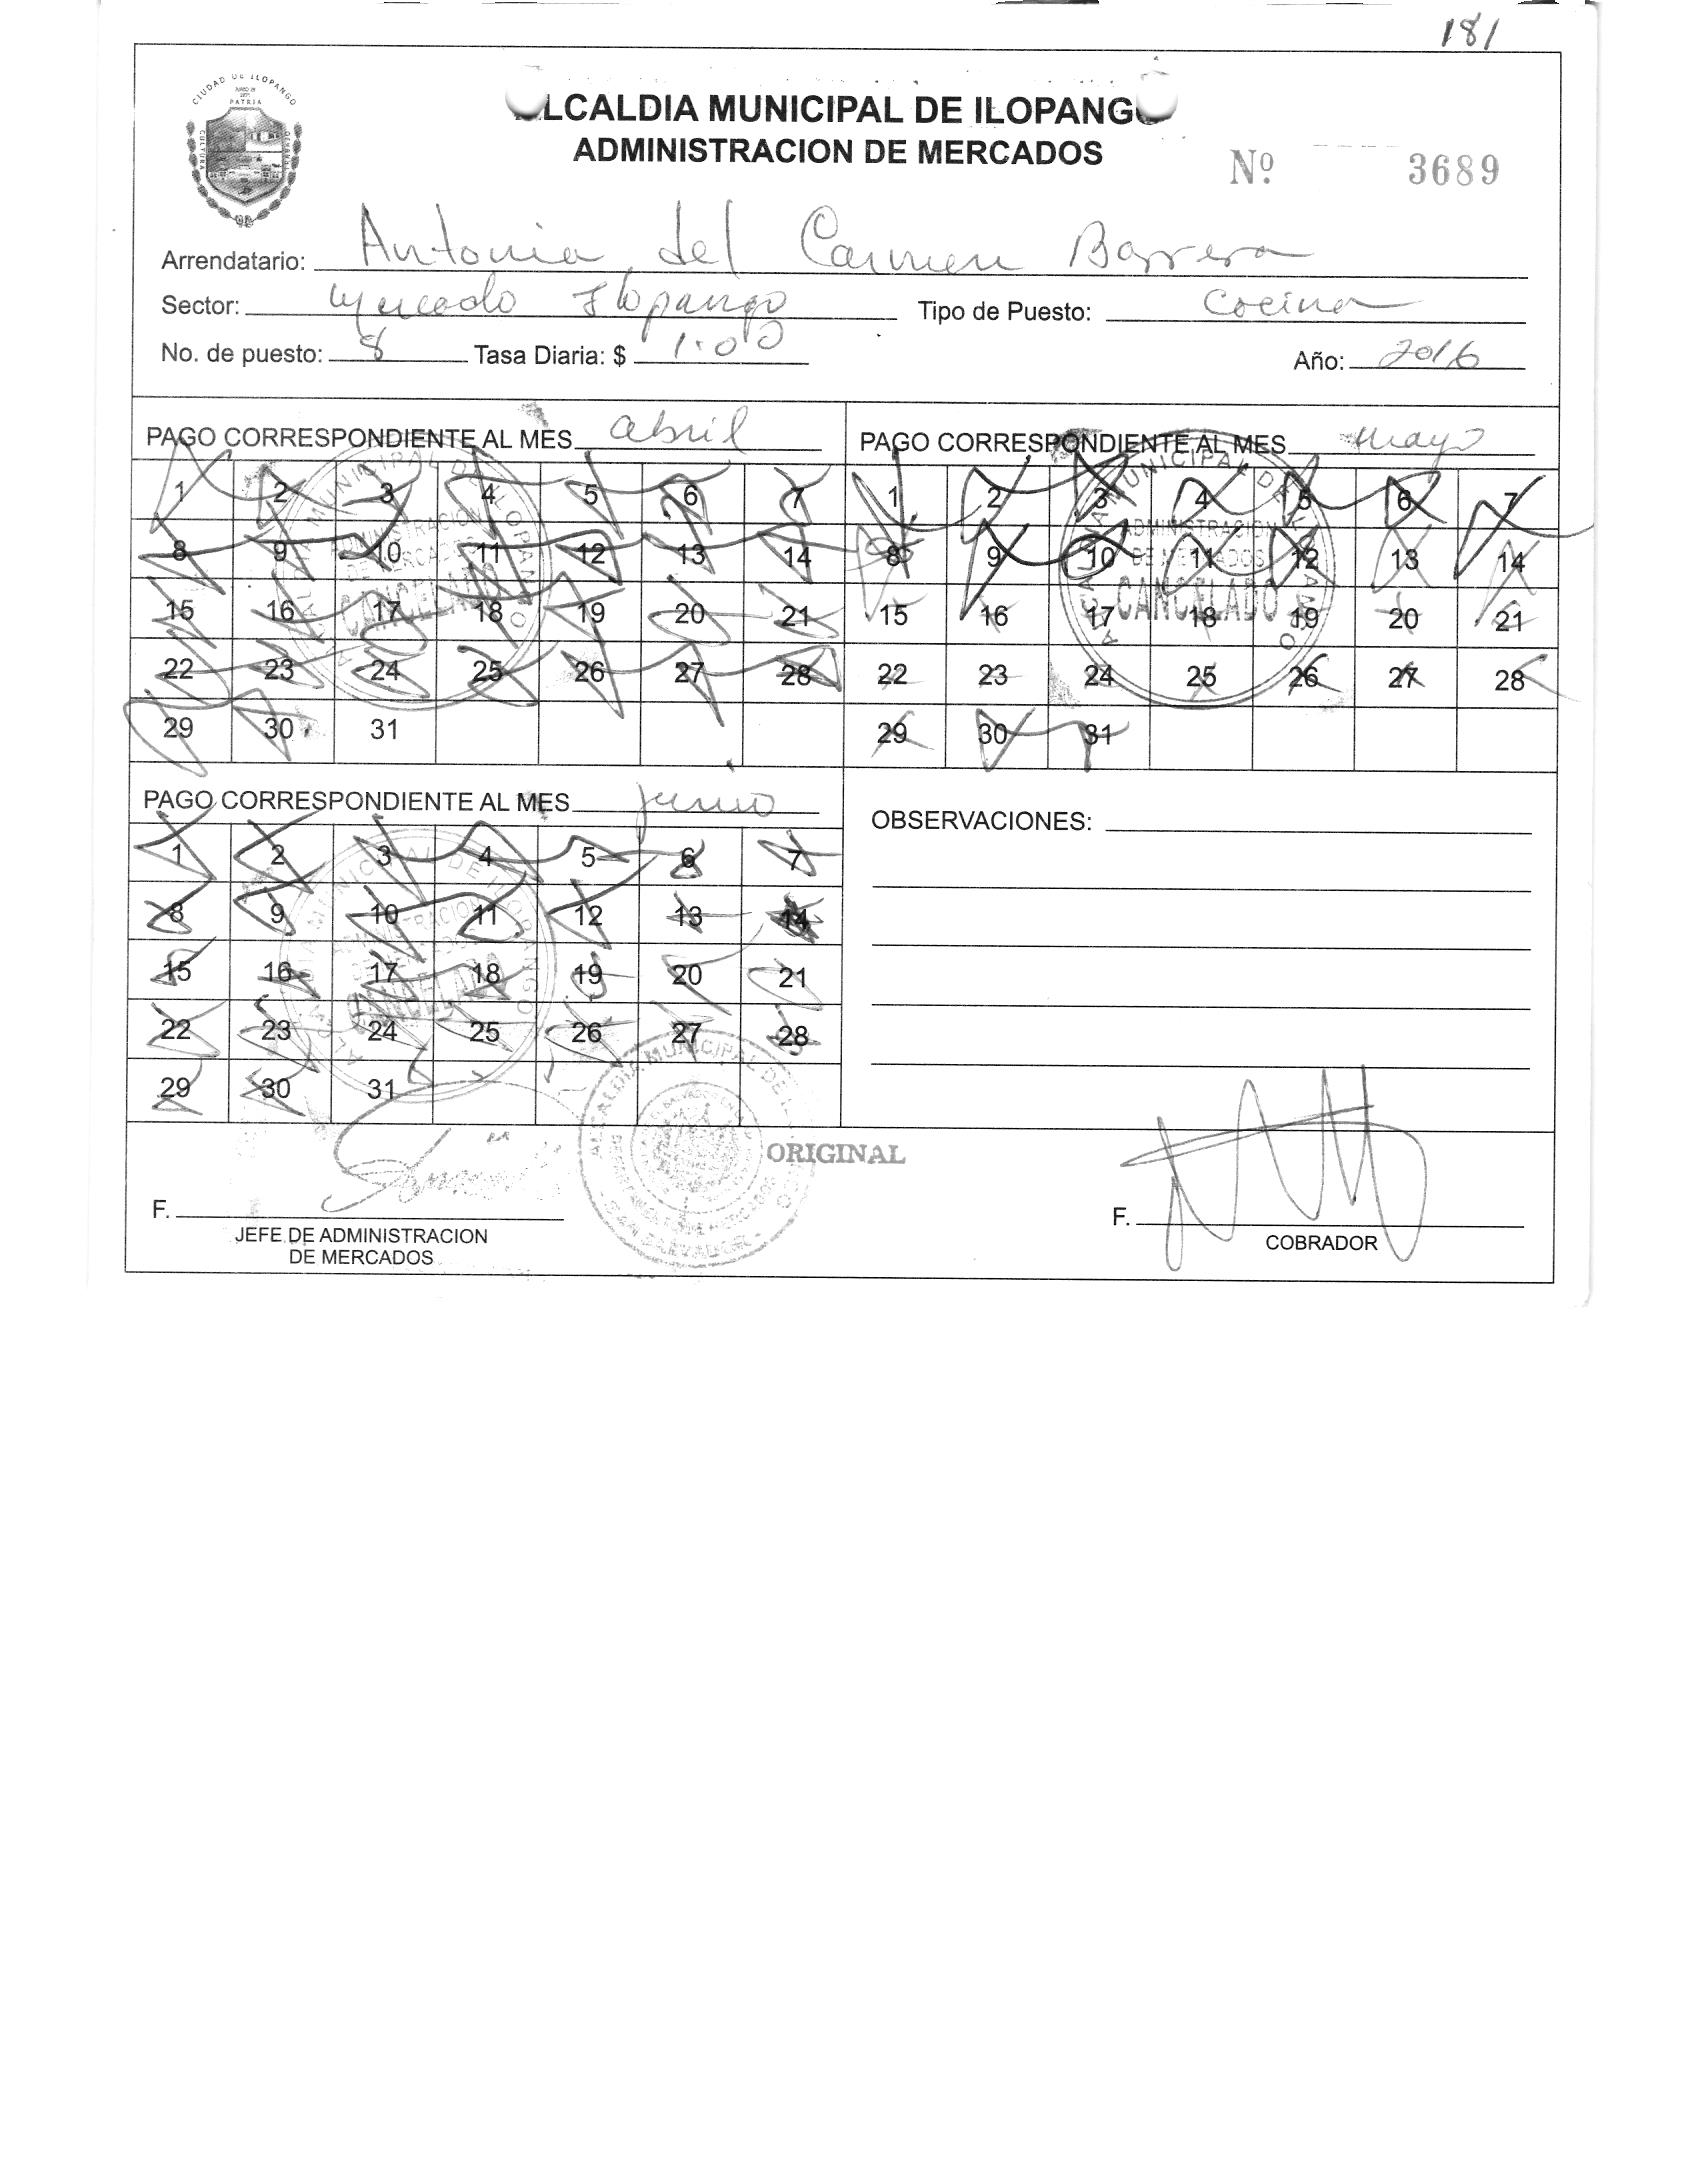 181
CIUDAD DE ILOPANGO
PATRIA
CULTURA
ALCALDIA MUNICIPAL DE ILOPANGO
ADMINISTRACION DE MERCADOS
Nº 3689
Arrendatario: Antonia del Carmen Barrera
Sector: Mercado Ilopango Tipo de Puesto: Cocina
No. de puesto: 8 Tasa Diaria: $ 1.00 Año: 2016
PAGO CORRESPONDIENTE AL MES abril
1 2 3 4 5 6 7
8 9 10 11 12 13 14
15 16 17 18 19 20 21
22 23 24 25 26 27 28
29 30 31
ALCALDIA MUNICIPAL DE ILOPANGO
ADMINISTRACION
DE MERCADOS
CANCELADO
PAGO CORRESPONDIENTE AL MES mayo
1 2 3 4 5 6 7
8 9 10 11 12 13 14
15 16 17 18 19 20 21
22 23 24 25 26 27 28
29 30 31
ALCALDIA MUNICIPAL DE ILOPANGO
ADMINISTRACION
DE MERCADOS
CANCELADO
PAGO CORRESPONDIENTE AL MES junio
1 2 3 4 5 6 7
8 9 10 11 12 13 14
15 16 17 18 19 20 21
22 23 24 25 26 27 28
29 30 31
ALCALDIA MUNICIPAL DE ILOPANGO
ADMINISTRACION
CANCELADO
OBSERVACIONES:
ALCALDIA MUNICIPAL DE
SAN SALVADOR
ORIGINAL
F.
JEFE DE ADMINISTRACION
DE MERCADOS
F.
COBRADOR